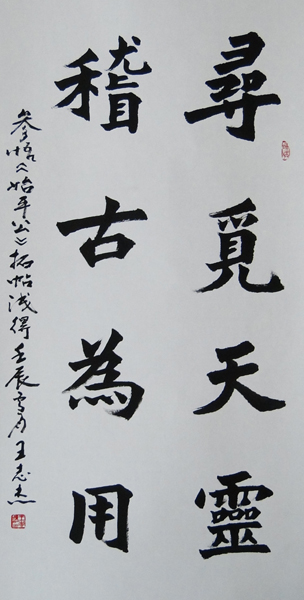 尋覓天靈
稽古為用
參悟《始平公》拓帖淺得 壬辰雪月 王志杰